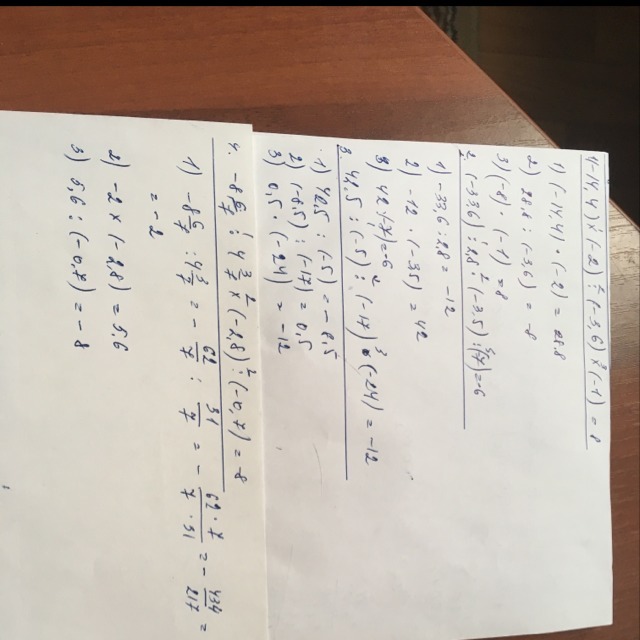 (-14,4) × (-2) : (-3,6) × (-1) = 8
1) (-14,4) · (-2) = 28.8
2) 28.8 : (-3,6) = -8
3) (-8) · (-1) = 8
2. (-33,6) : 2,8 · (-3,5) : (-7) = -6
1) -33,6 : 2,8 = -12
2) -12 · (-3,5) = 42
3) 42 : (-7) = -6
3. 42,5 : (-5) : (-17) · (-24) = -12
1) 42,5 : (-5) = -8,5
2) (-8.5) : (-17) = 0,5
3) 0,5 · (-24) = -12
4. -8 6/7 : 4 3/7 × (-2,8) : (-0,7) = -8
1) -8 6/7 : 4 3/7 = - 62/7 : 31/7 = - 62 · 7/7 · 31 = - 434/217 =
= -2
2) -2 × (-2,8) = 5,6
3) 5,6 : (-0,7) = -8